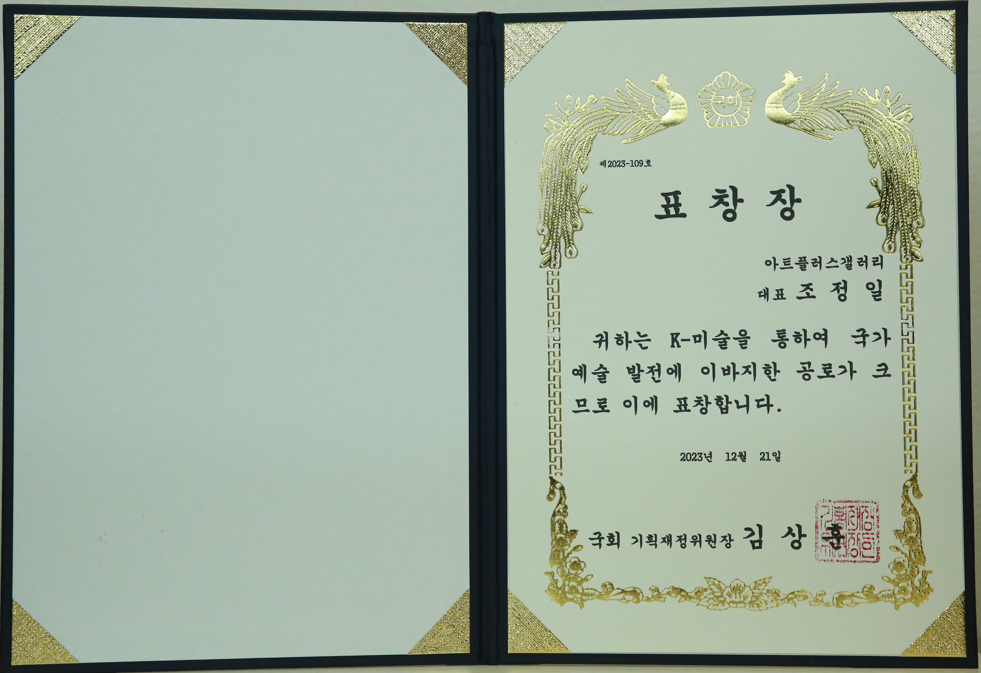 국회
제2023-109호
표 창 장
아트플러스갤러리
대표 조 정 일
귀하는 K-미술을 통하여 국가
예술 발전에 이바지한 공로가 크
므로 이에 표창합니다.
2023년 12월 21일
국회 기획재정위원장 김 상 훈